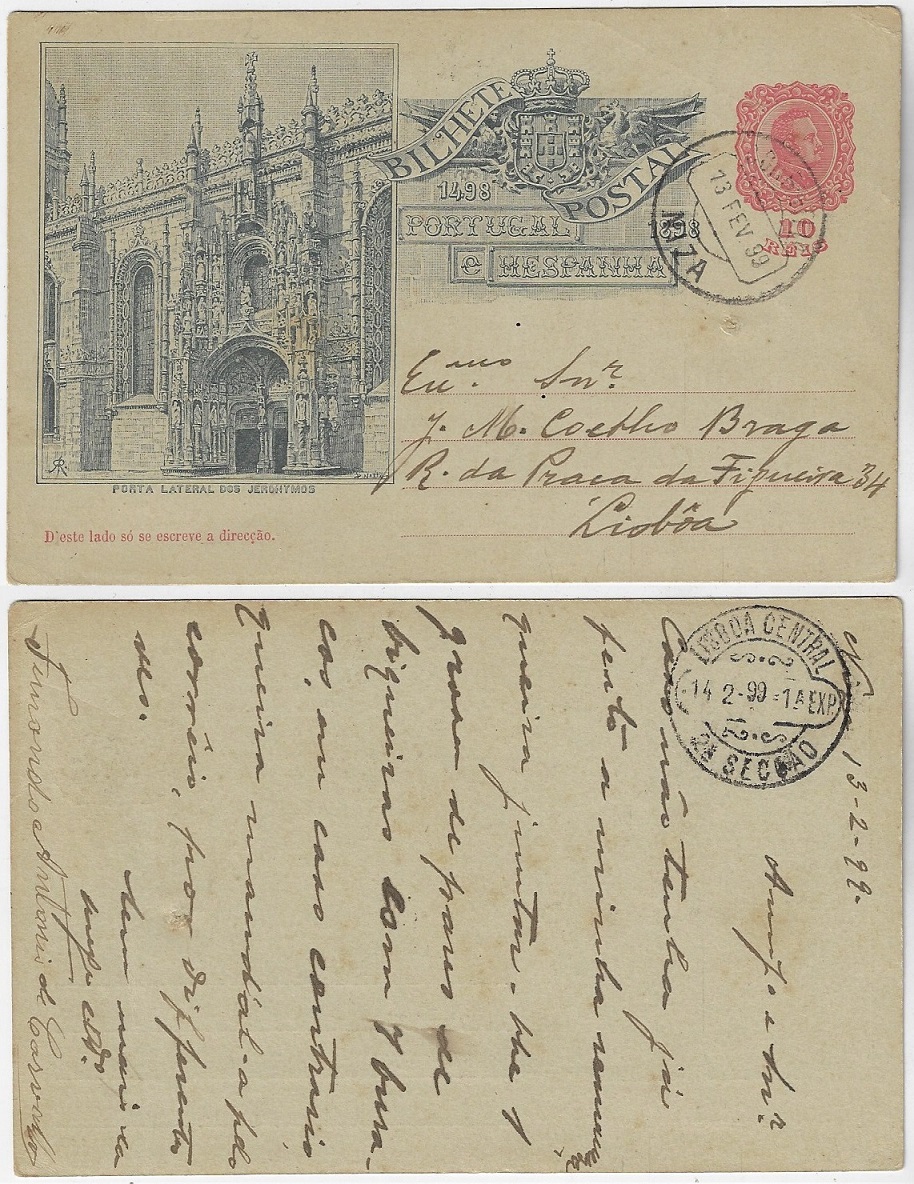 BILHETE POSTAL
1498 1898
PORTUGAL
e HESPANHA
10
REIS
13 FEV 99
NIZA
Exmo. Snr.
J. M. Coelho Braga
R. da Praca da Figueira 34
Lisbôa
PORTA LATERAL DOS JERONYMOS
D'este lado só se escreve a direcção.
LISBOA CENTRAL
14 2-99 -1A EXP.
2A SECÇÃO
13-2-99.
Amigo e Snr.
Caso não tenha já
feito a minha
queira juntar-lhe 1
grosa de pares de
biqueiras com 7 bura-
cos, ou caso contrario
queira mandál-a pelo
corrêio, por
de
Antonio de Carvalho